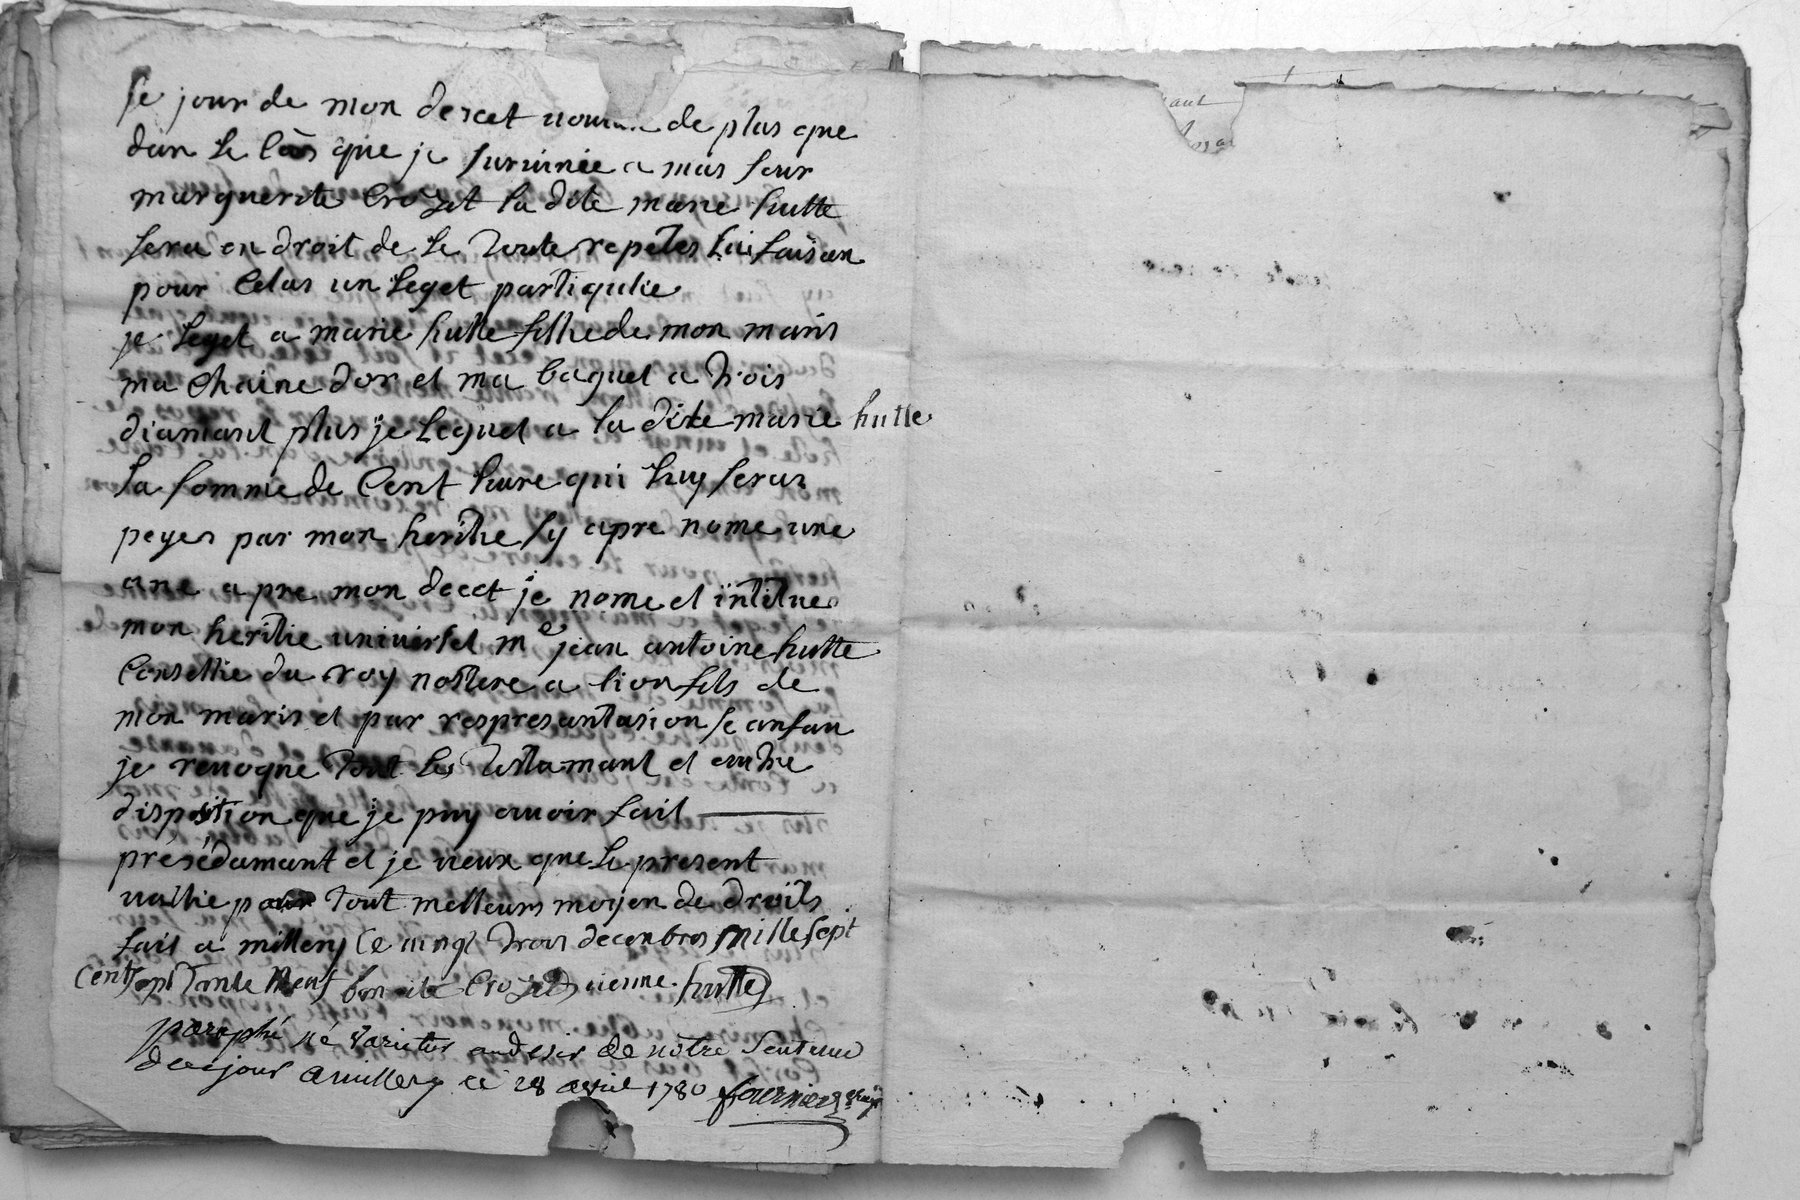 Le jour de mon descet de plus que
dan le cas que je survivrée a mas seur
marguerite Crozet la dite marie hutte
sera en droit de le toute repetes lui faisan
pour celas un leget partiqulie
je leget a marie hutte fillie de mon maris
ma chaine dor et ma baguet a trois
diamant plus je leguet a la dite marie hutte
la somme de cent livre qui luy seras
peyes par mon heritie sy apre nome une
ane apre mon decet je nome et intitues
mon heritie universel me jean antoine hutte
Consellie du roy nottere a lion fils de
mon maris et par respresantasion se anfan
je revoque tout les testamant et autre
disposition que je puy avoir fait
présédamant et je veux que le present
vallie pour tout melleurs moyen de droits
fait a millery ce vingt trois decenbres mille sept
cent sept tante neuf Crozet vienne hutte
paraphé né varietur au desir de nôtre Sentence
de ce jour a millery ce 28 avril 1780 fournier
aut